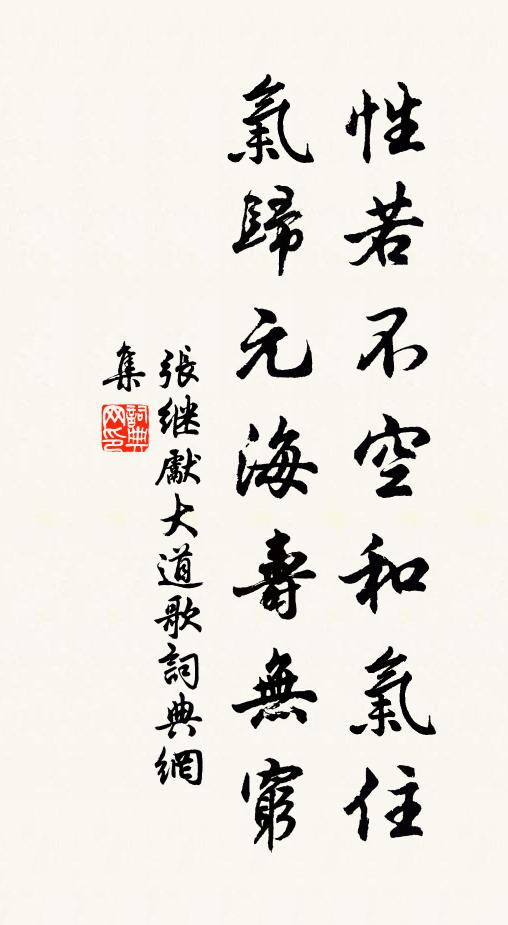 性若不空和氣住
氣歸元海壽無窮
張继獻大道歌詞典網
集
詞典
网印